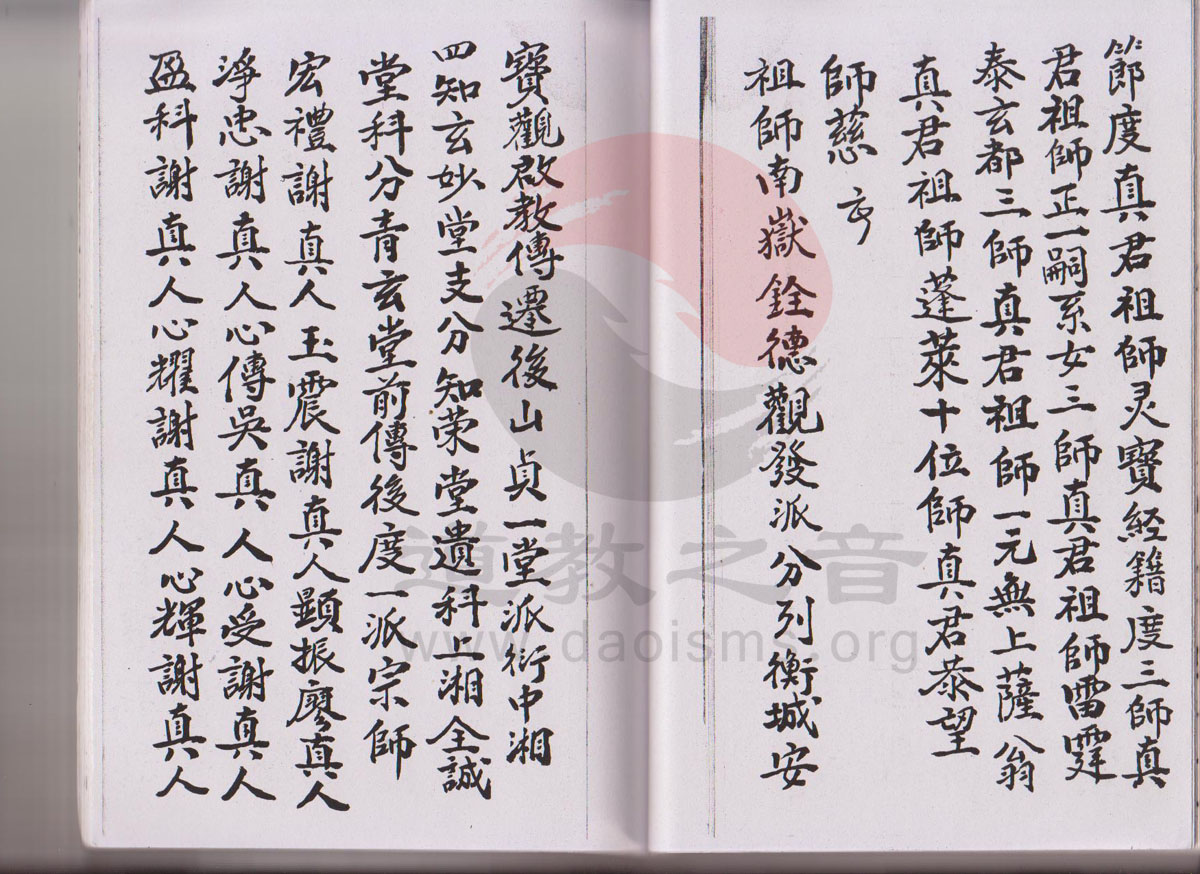 節度真君祖師灵寶経籍度三師真
君祖師正一嗣系女三師真君祖師雷霆
泰玄都三師真君祖師一元無上薩翁
真君祖師蓬萊十位師真君恭望
師慈
祖師南嶽銓德觀發派分列衡城安
寶觀啟教傳遷後山貞一堂派衍中湘
四知玄妙堂支分知荣堂遺科上湘全誠
堂科分青玄堂前傳後度一派宗師
宏禮謝真人玉震謝真人顯振廖真人
淨忠謝真人心傳吳真人心受謝真人
盈科謝真人心耀謝真人心輝謝真人
道教之音
www.daoisms.org